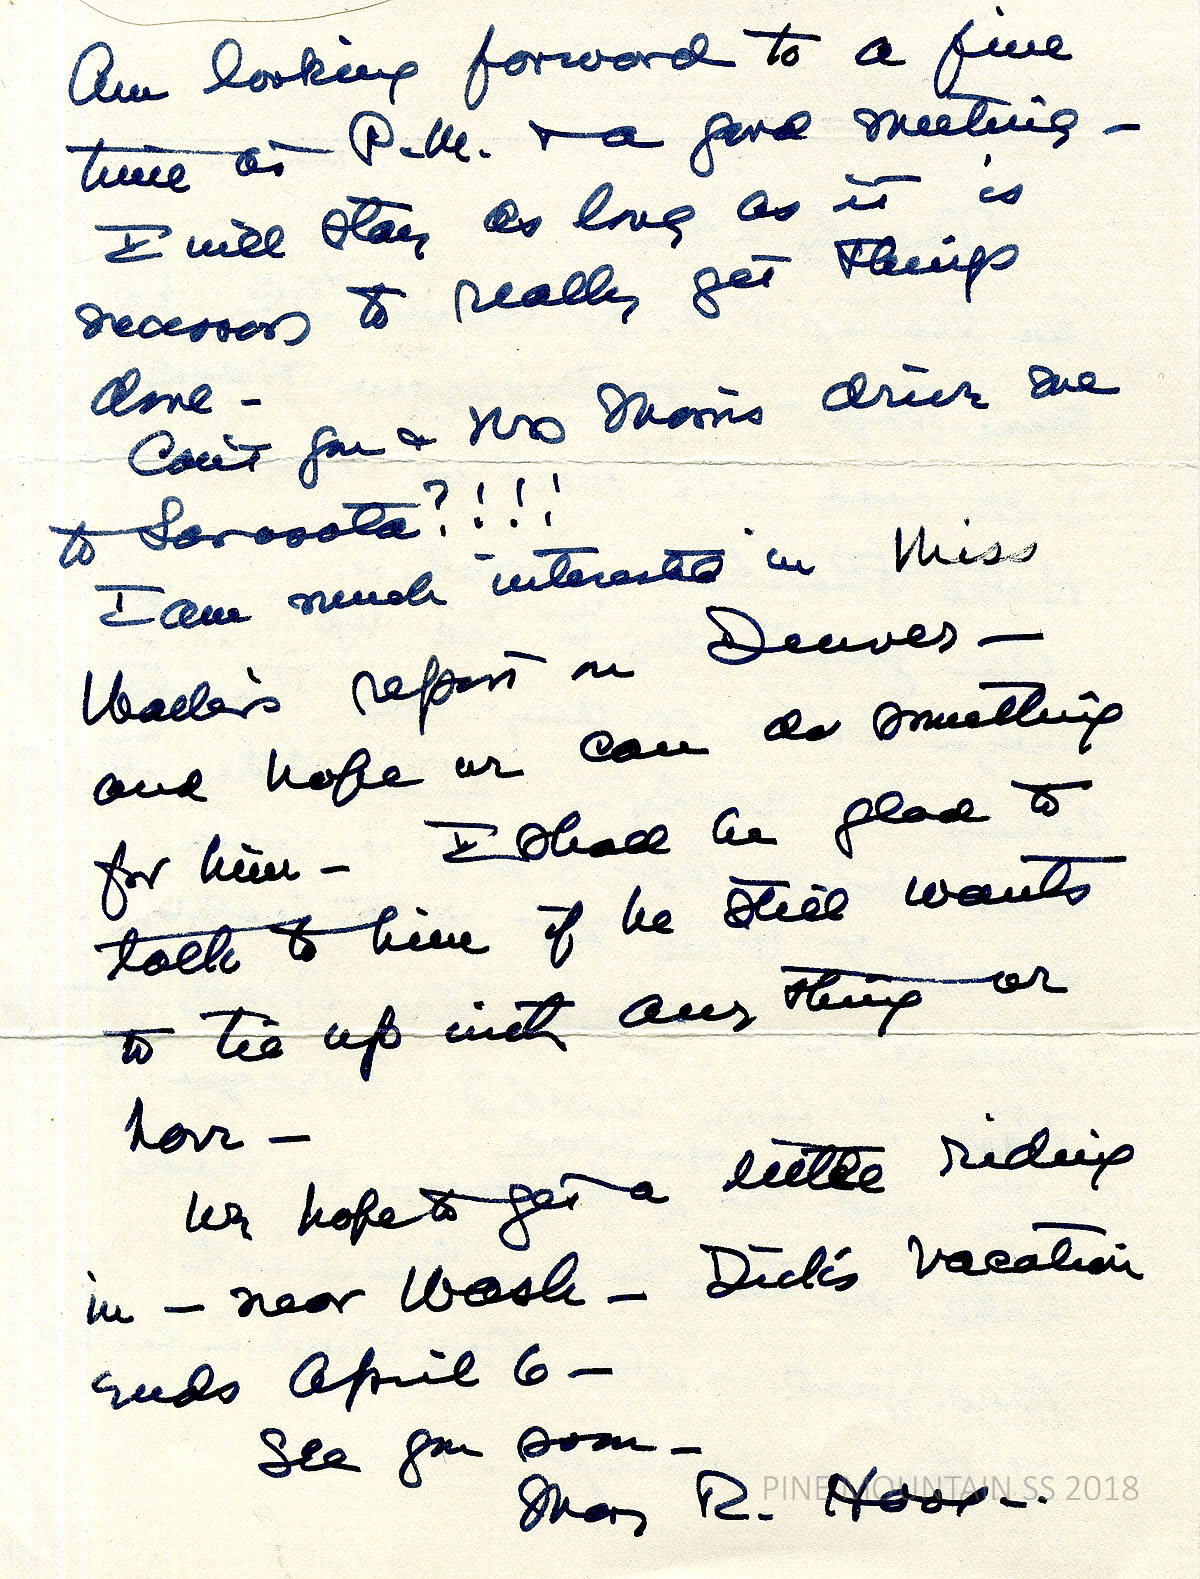 Am looking forward to a fine
time at P.M. + a good meeting –
I will stay as long as it is
necessary to really get things
done –
Can't you + Mrs Morris drive me
to Sarasota?!!!!
I am much interested in Miss
report on Denver –
and hope we can do something
for him – I shall be glad to
talk to him if he still wants
to tie up with any thing or
here –
We hope to get a little riding
in – near Wash – Dick's vacation
ends April 6 –
See you soon –
Mary R.
PINE MOUNTAIN SS 2018